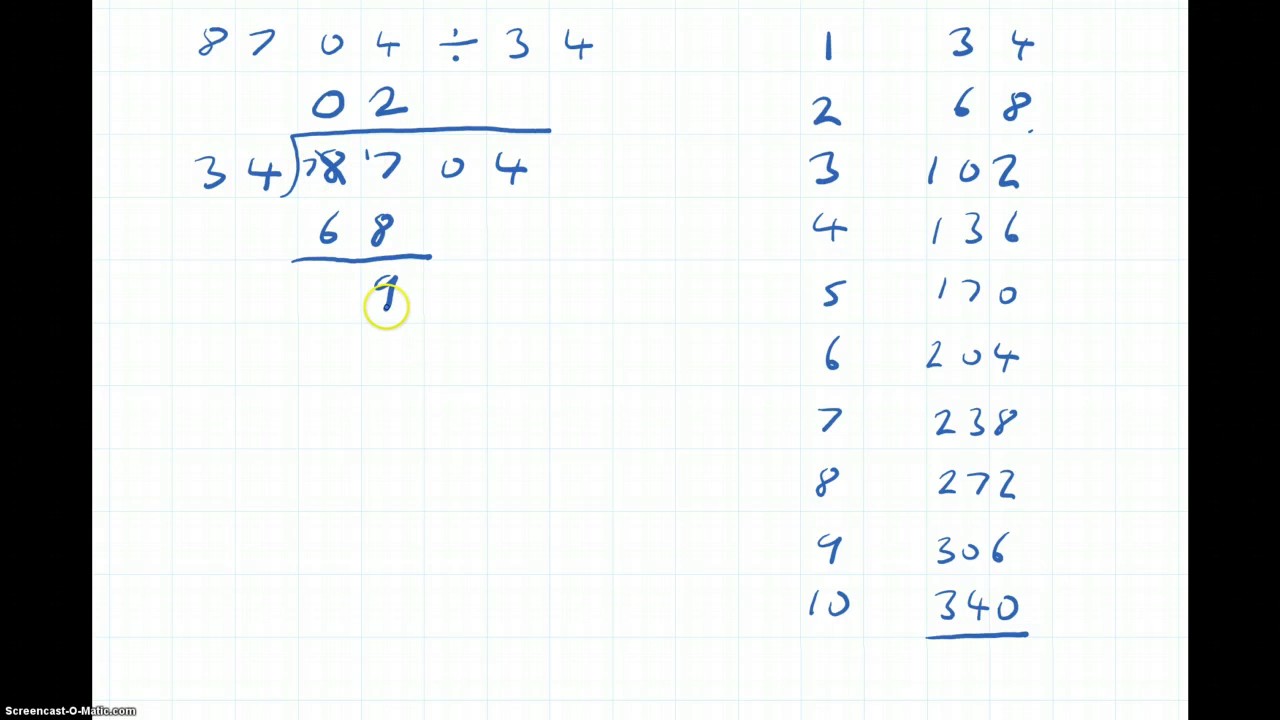 8704 ÷ 34
02
34)78 17 0 4
68
9
1 34
2 68
3 102
4 136
5 170
6 204
7 238
8 272
9 306
10 340
Screencast-O-Matic.com